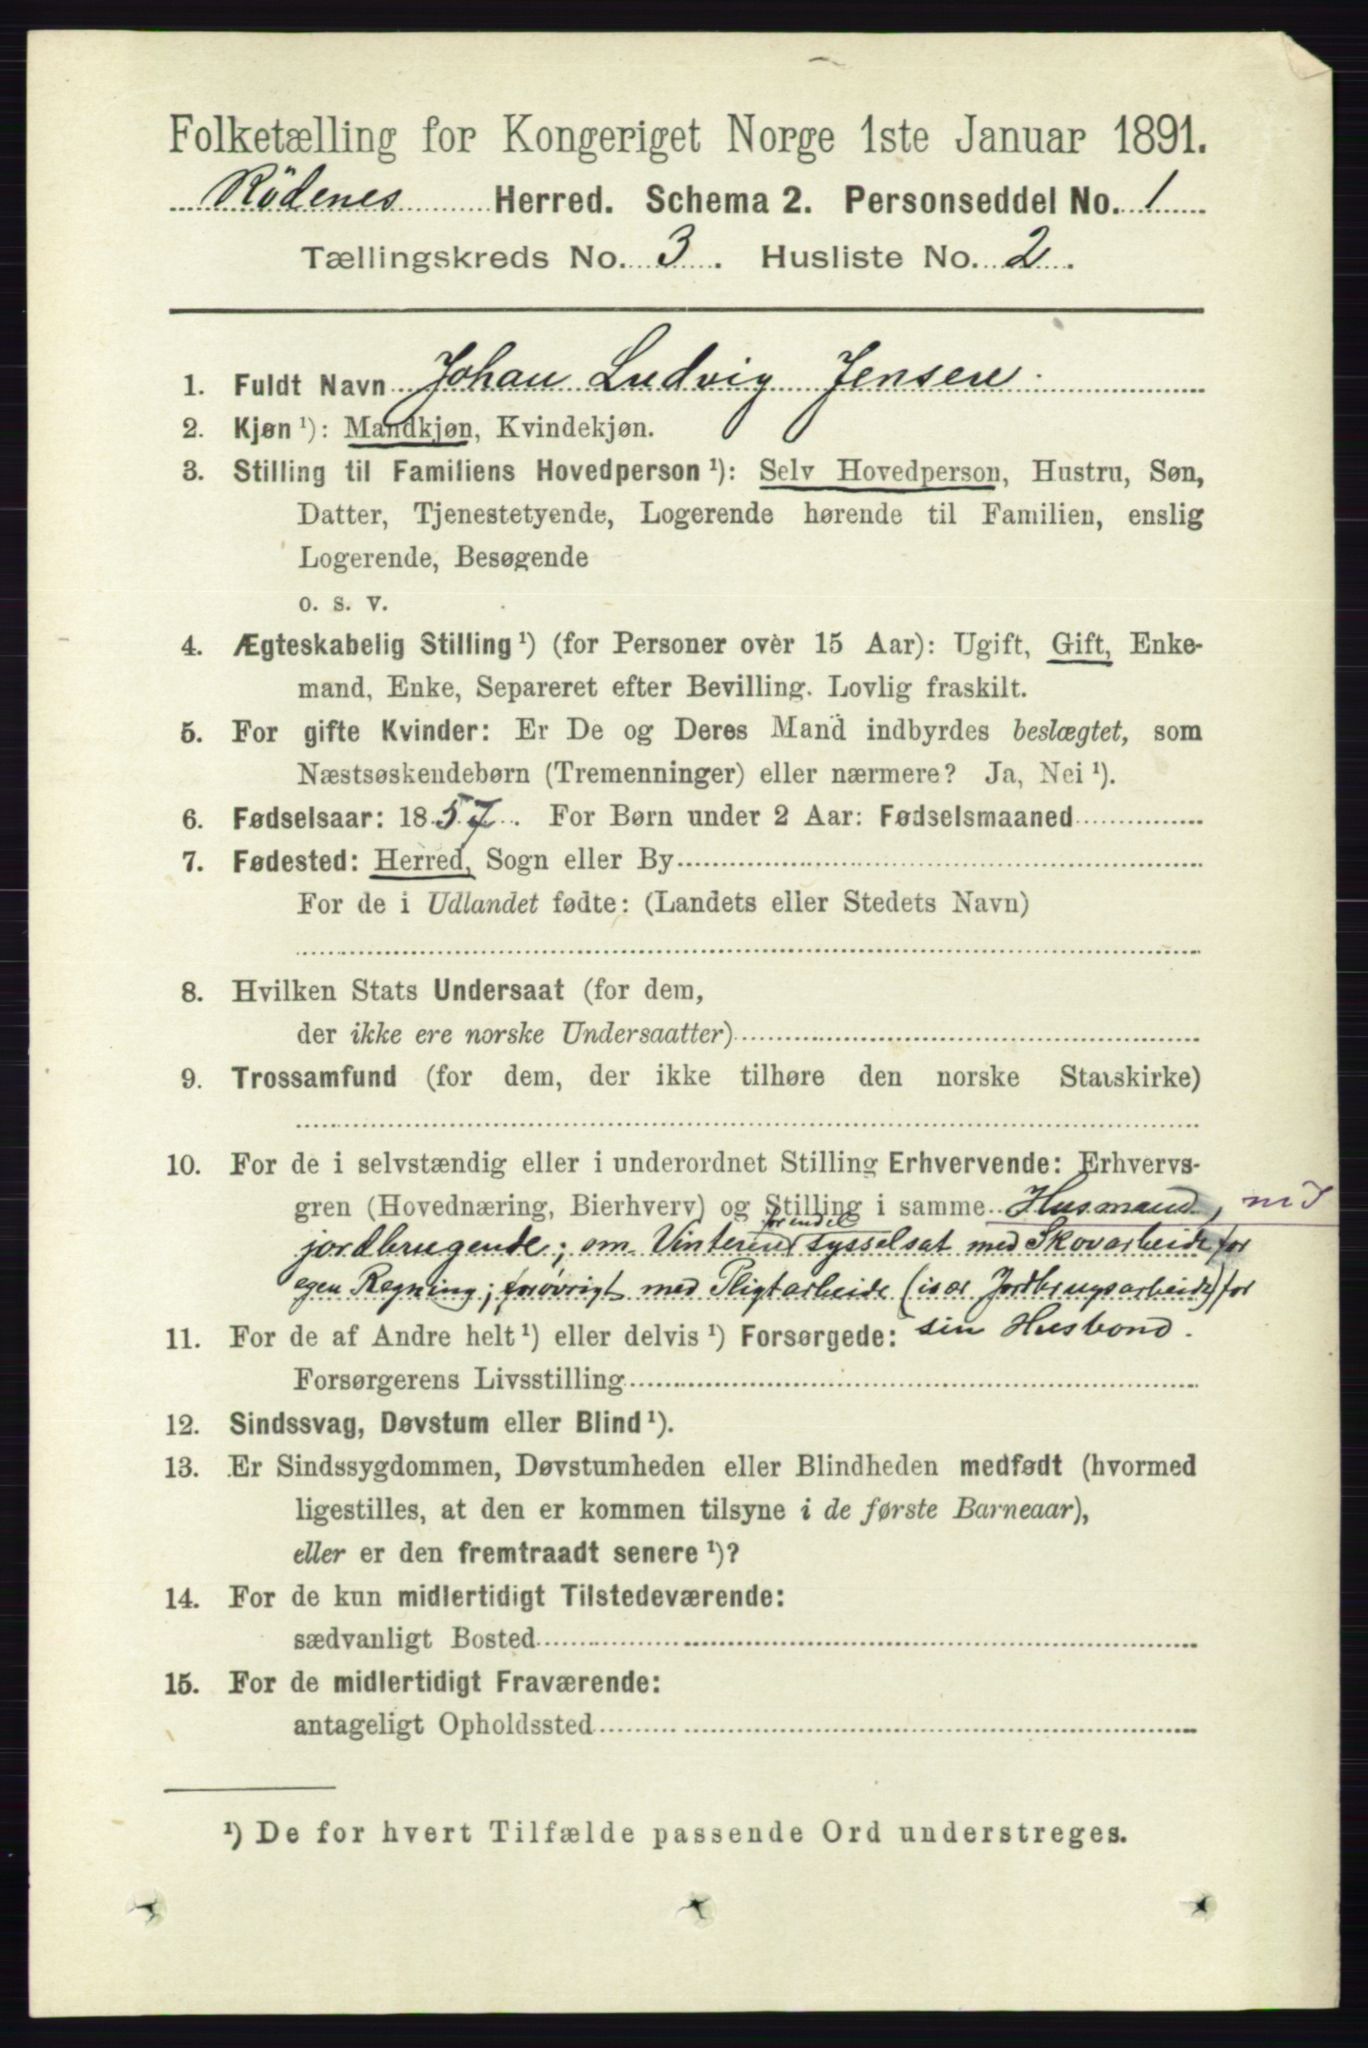 Folketælling for Kongeriget Norge 1ste Januar 1891.
Rödenes Herred. Schema 2. Personseddel No. 1
Tællingskreds No. 3. Husliste No. 2.
1. Fuldt Navn Johan Ludvig Jensen.
2. Kjøn ¹): Mandkjøn, Kvindekjøn.
3. Stilling til Familiens Hovedperson ¹): Selv Hovedperson, Hustru, Søn,
Datter, Tjenestetyende, Logerende hørende til Familien, enslig
Logerende, Besøgende
o. s. v.
4. Ægteskabelig Stilling ¹) (for Personer over 15 Aar): Ugift, Gift, Enke-
mand, Enke, Separeret efter Bevilling. Lovlig fraskilt.
5. For gifte Kvinder: Er De og Deres Mand indbyrdes beslægtet, som
Næstsøskendebørn (Tremenninger) eller nærmere? Ja, Nei ¹).
6. Fødselsaar: 1857. For Børn under 2 Aar: Fødselsmaaned
7. Fødested: Herred, Sogn eller By
For de i Udlandet fødte: (Landets eller Stedets Navn)
8. Hvilken Stats Undersaat (for dem,
der ikke ere norske Undersaatter)
9. Trossamfund (for dem, der ikke tilhøre den norske Statskirke)
10. For de i selvstændig eller i underordnet Stilling Erhvervende: Erhvervs-
gren (Hovednæring, Bierhverv) og Stilling i samme Husmand, m J
jordbrugende; om Vinteren forendel sysselsat med Skovarbeide for
egen Regning; forøvrigt med Pligtarbeide (især Jordbrugsarbeide) for
sin Husbond.
11. For de af Andre helt ¹) eller delvis ¹) Forsørgede:
Forsørgerens Livsstilling
12. Sindssvag, Døvstum eller Blind ¹).
13. Er Sindssygdommen, Døvstumheden eller Blindheden medfødt (hvormed
ligestilles, at den er kommen tilsyne i de første Barneaar),
eller er den fremtraadt senere ¹)?
14. For de kun midlertidigt Tilstedeværende:
sædvanligt Bosted
15. For de midlertidigt Fraværende:
antageligt Opholdssted
¹) De for hvert Tilfælde passende Ord understreges.